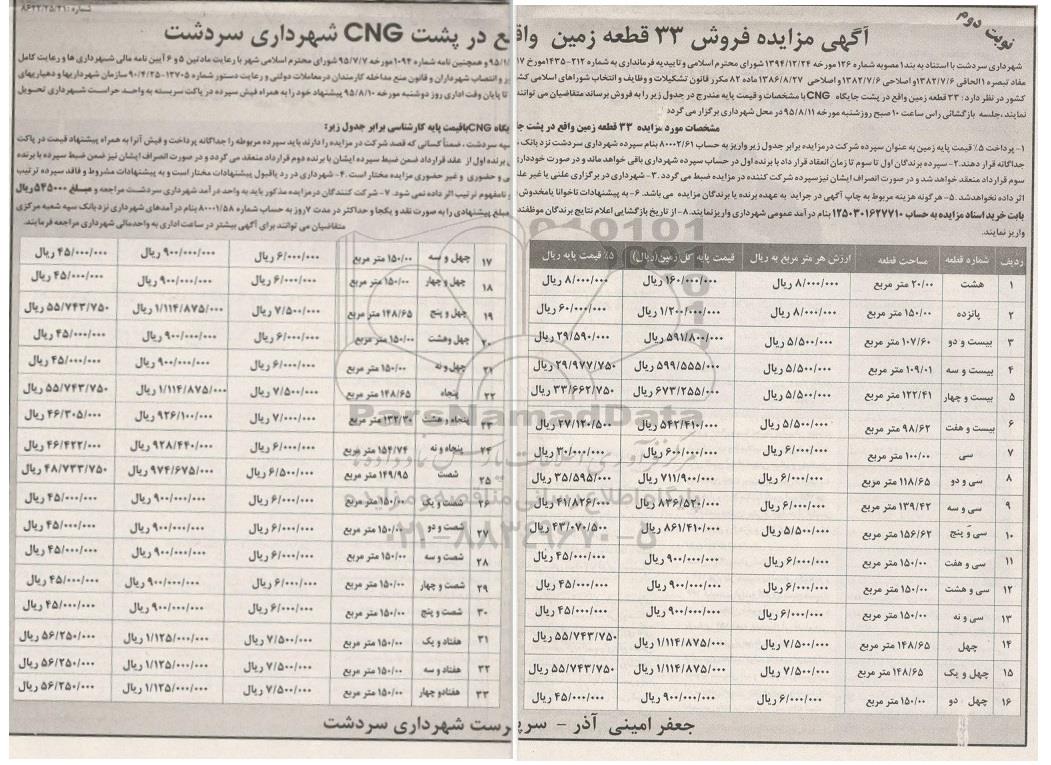 نوبت دوم
شماره: ۸۶۲۲/۲۵/۲۱
آگهی مزایده فروش ۳۳ قطعه زمین واقع در پشت CNG شهرداری سردشت
شهرداری سردشت با استناد به بند ۱ مصوبه شماره ۱۲۶ مورخه ۱۳۹۴/۱۲/۲۴ شورای محترم اسلامی و تاییدیه فرمانداری به شماره
و همچنین نامه شماره ۱۰۹۴ مورخه ۹۵/۷/۷ شورای محترم اسلامی شهر با رعایت مادتین ۵ و ۶ آیین نامه مالی شهرداری ها و رعایت کامل
مفاد تبصره ۱ الحاقی ۱۳۸۲/۷/۶ و اصلاحی ۱۳۸۲/۷/۶ و اصلاحی ۱۳۸۶/۸/۲۷ ماده ۸۲ مکرر قانون تشکیلات و وظایف و انتخاب شوراهای اسلامی
و انتصاب شهرداران و قانون منع مداخله کارمندان در معاملات دولتی و رعایت دستور شماره ۹۰/۴/۲۵-۱۲۷۰۵ سازمان شهرداریها و دهیاریهای
کشور در نظر دارد : ۳۳ قطعه زمین واقع در پشت جایگاه CNG با مشخصات و قیمت پایه مندرج در جدول زیر را به فروش برساند متقاضیان می توانند
تا پایان وقت اداری روز دوشنبه مورخه ۹۵/۸/۱۰ پیشنهاد خود را به همراه فیش سپرده در پاکت سربسته به واحد حراست شهرداری تحویل
نمایند، جلسه بازگشائی راس ساعت ۱۰ صبح روز شنبه مورخه ۹۵/۸/۱۱ در محل شهرداری برگزار می گردد
مشخصات مورد مزایده ۳۳ قطعه زمین واقع در پشت جایگاه CNG باقیمت پایه کارشناسی برابر جدول زیر:
۱- پرداخت ۵٪ قیمت پایه زمین به عنوان سپرده شرکت در مزایده برابر جدول زیر و واریز به حساب ۸۰۰۰۲/۶۱ بنام سپرده شهرداری سردشت نزد بانک
سپه سردشت ، ضمناً کسانی که قصد شرکت در مزایده را دارند باید سپرده مربوطه را جداگانه پرداخت و فیش آنرا به همراه پیشنهاد قیمت در پاکت
جداگانه قرار دهند. ۲- سپرده برندگان اول تا سوم تا زمان انعقاد قرار داد با برنده اول در حساب سپرده شهرداری باقی خواهد ماند و در صورت خودداری
برنده اول از عقد قرارداد ضمن ضبط سپرده ایشان با برنده دوم قرارداد منعقد می گردد و در صورت انصراف ایشان نیز ضمن ضبط سپرده با برنده
سوم قرارداد منعقد خواهد شد و در صورت انصراف ایشان نیز سپرده شرکت کننده در مزایده ضبط می گردد. ۳- شهرداری در برگزاری علنی یا غیر علنی
و حضوری و غیر حضوری مزایده مختار است. ۴- شهرداری در رد یا قبول پیشنهادات مختار است و به پیشنهادات مشروط و فاقد سپرده ترتیب
اثر داده نخواهد شد. ۵- هر گونه هزینه مربوط به چاپ آگهی در جراید به عهده برنده یا برندگان مزایده می باشد. ۶- به پیشنهادات ناخوانا یا مخدوش
و نامفهوم ترتیب اثر داده نمی شود. ۷- شرکت کنندگان در مزایده مذکور باید به واحد در آمد شهرداری سردشت مراجعه و مبلغ ۵۴۵۰۰۰ ریال
بابت خرید اسناد مزایده به حساب ۱۲۵۰۳۰۱۶۲۷۷۱۰ بنام درآمد عمومی شهرداری واریز نمایند. ۸- از تاریخ بازگشایی اعلام نتایج برندگان موظفند
مبلغ پیشنهادی را به صورت نقد و یکجا و حداکثر در مدت ۷ روز به حساب شماره ۸۰۰۰۱/۵۸ بنام درآمدهای شهرداری نزد بانک سپه شعبه مرکزی
واریز نمایند.
متقاضیان می توانند برای آگهی بیشتر در ساعت اداری به واحد مالی شهرداری مراجعه فرمایند.
ردیف شماره قطعه مساحت قطعه ارزش هر متر مربع به ریال قیمت پایه کل زمین(ریال) ۵٪ قیمت پایه ریال
۱ هشت ۲۰/۰۰ متر مربع ۸/۰۰۰/۰۰۰ ریال ۱۶۰/۰۰۰/۰۰۰ ریال ۸/۰۰۰/۰۰۰ ریال
۲ پانزده ۱۵۰/۰۰ متر مربع ۸/۰۰۰/۰۰۰ ریال ۱/۲۰۰/۰۰۰/۰۰۰ ریال ۶۰/۰۰۰/۰۰۰ ریال
۳ بیست و دو ۱۰۷/۶۰ متر مربع ۵/۵۰۰/۰۰۰ ریال ۵۹۱/۸۰۰/۰۰۰ ریال ۲۹/۵۹۰/۰۰۰ ریال
۴ بیست و سه ۱۰۹/۰۱ متر مربع ۵/۵۰۰/۰۰۰ ریال ۵۹۹/۵۵۵/۰۰۰ ریال ۲۹/۹۷۷/۷۵۰ ریال
۵ بیست و چهار ۱۲۲/۴۱ متر مربع ۵/۵۰۰/۰۰۰ ریال ۶۷۳/۲۵۵/۰۰۰ ریال ۳۳/۶۶۲/۷۵۰ ریال
۶ بیست و هفت ۹۸/۶۲ متر مربع ۵/۵۰۰/۰۰۰ ریال ۵۴۲/۴۱۰/۰۰۰ ریال ۲۷/۱۲۰/۵۰۰ ریال
۷ سی ۱۰۰/۰۰ متر مربع ۶/۰۰۰/۰۰۰ ریال ۶۰۰/۰۰۰/۰۰۰ ریال ۳۰/۰۰۰/۰۰۰ ریال
۸ سی و دو ۱۱۸/۶۵ متر مربع ۶/۰۰۰/۰۰۰ ریال ۷۱۱/۹۰۰/۰۰۰ ریال ۳۵/۵۹۵/۰۰۰ ریال
۹ سی و سه ۱۳۹/۴۲ متر مربع ۶/۰۰۰/۰۰۰ ریال ۸۳۶/۵۲۰/۰۰۰ ریال ۴۱/۸۲۶/۰۰۰ ریال
۱۰ سی و پنج ۱۵۶/۶۲ متر مربع ۵/۵۰۰/۰۰۰ ریال ۸۶۱/۴۱۰/۰۰۰ ریال ۴۳/۰۷۰/۵۰۰ ریال
۱۱ سی و هفت ۱۵۰/۰۰ متر مربع ۶/۰۰۰/۰۰۰ ریال ۹۰۰/۰۰۰/۰۰۰ ریال ۴۵/۰۰۰/۰۰۰ ریال
۱۲ سی و هشت ۱۵۰/۰۰ متر مربع ۶/۰۰۰/۰۰۰ ریال ۹۰۰/۰۰۰/۰۰۰ ریال ۴۵/۰۰۰/۰۰۰ ریال
۱۳ سی و نه ۱۵۰/۰۰ متر مربع ۶/۰۰۰/۰۰۰ ریال ۹۰۰/۰۰۰/۰۰۰ ریال ۴۵/۰۰۰/۰۰۰ ریال
۱۴ چهل ۱۴۸/۶۵ متر مربع ۷/۵۰۰/۰۰۰ ریال ۱/۱۱۴/۸۷۵/۰۰۰ ریال ۵۵/۷۴۳/۷۵۰ ریال
۱۵ چهل و یک ۱۴۸/۶۵ متر مربع ۷/۵۰۰/۰۰۰ ریال ۱/۱۱۴/۸۷۵/۰۰۰ ریال ۵۵/۷۴۳/۷۵۰ ریال
۱۶ چهل دو ۱۵۰/۰۰ متر مربع ۶/۰۰۰/۰۰۰ ریال ۹۰۰/۰۰۰/۰۰۰ ریال ۴۵/۰۰۰/۰۰۰ ریال
۱۷ چهل و سه ۱۵۰/۰۰ متر مربع ۶/۰۰۰/۰۰۰ ریال ۹۰۰/۰۰۰/۰۰۰ ریال ۴۵/۰۰۰/۰۰۰ ریال
۱۸ چهل و چهار ۱۵۰/۰۰ متر مربع ۶/۰۰۰/۰۰۰ ریال ۹۰۰/۰۰۰/۰۰۰ ریال ۴۵/۰۰۰/۰۰۰ ریال
۱۹ چهل و پنج ۱۴۸/۶۵ متر مربع ۷/۵۰۰/۰۰۰ ریال ۱/۱۱۴/۸۷۵/۰۰۰ ریال ۵۵/۷۴۳/۷۵۰ ریال
۲۰ چهل وهشت ۱۵۰/۰۰ متر مربع ۶/۰۰۰/۰۰۰ ریال ۹۰۰/۰۰۰/۰۰۰ ریال ۴۵/۰۰۰/۰۰۰ ریال
۲۱ چهل و نه ۱۵۰/۰۰ متر مربع ۶/۰۰۰/۰۰۰ ریال ۹۰۰/۰۰۰/۰۰۰ ریال ۴۵/۰۰۰/۰۰۰ ریال
۲۲ پنجاه ۱۴۸/۶۵ متر مربع ۷/۵۰۰/۰۰۰ ریال ۱/۱۱۴/۸۷۵/۰۰۰ ریال ۵۵/۷۴۳/۷۵۰ ریال
۲۳ پنجاه و هشت ۱۳۲/۳۰ متر مربع ۷/۰۰۰/۰۰۰ ریال ۹۲۶/۱۰۰/۰۰۰ ریال ۴۶/۳۰۵/۰۰۰ ریال
۲۴ پنجاه و نه ۱۵۴/۷۴ متر مربع ۶/۰۰۰/۰۰۰ ریال ۹۲۸/۴۴۰/۰۰۰ ریال ۴۶/۴۲۲/۰۰۰ ریال
۲۵ شصت ۱۴۹/۹۵ متر مربع ۶/۵۰۰/۰۰۰ ریال ۹۷۴/۶۷۵/۰۰۰ ریال ۴۸/۷۳۳/۷۵۰ ریال
۲۶ شصت و یک ۱۵۰/۰۰ متر مربع ۶/۰۰۰/۰۰۰ ریال ۹۰۰/۰۰۰/۰۰۰ ریال ۴۵/۰۰۰/۰۰۰ ریال
۲۷ شصت و دو ۱۵۰/۰۰ متر مربع ۶/۰۰۰/۰۰۰ ریال ۹۰۰/۰۰۰/۰۰۰ ریال ۴۵/۰۰۰/۰۰۰ ریال
۲۸ شصت و سه ۱۵۰/۰۰ متر مربع ۶/۰۰۰/۰۰۰ ریال ۹۰۰/۰۰۰/۰۰۰ ریال ۴۵/۰۰۰/۰۰۰ ریال
۲۹ شصت و چهار ۱۵۰/۰۰ متر مربع ۶/۰۰۰/۰۰۰ ریال ۹۰۰/۰۰۰/۰۰۰ ریال ۴۵/۰۰۰/۰۰۰ ریال
۳۰ شصت و پنج ۱۵۰/۰۰ متر مربع ۶/۰۰۰/۰۰۰ ریال ۹۰۰/۰۰۰/۰۰۰ ریال ۴۵/۰۰۰/۰۰۰ ریال
۳۱ هفتاد و یک ۱۵۰/۰۰ متر مربع ۷/۵۰۰/۰۰۰ ریال ۱/۱۲۵/۰۰۰/۰۰۰ ریال ۵۶/۲۵۰/۰۰۰ ریال
۳۲ هفتاد و سه ۱۵۰/۰۰ متر مربع ۷/۵۰۰/۰۰۰ ریال ۱/۱۲۵/۰۰۰/۰۰۰ ریال ۵۶/۲۵۰/۰۰۰ ریال
۳۳ هفتادو چهار ۱۵۰/۰۰ متر مربع ۷/۵۰۰/۰۰۰ ریال ۱/۱۲۵/۰۰۰/۰۰۰ ریال ۵۶/۲۵۰/۰۰۰ ریال
جعفر امینی آذر - سرپرست شهرداری سردشت
ParsNamadData
۰۲۱-۸۸۳۴۹۶۷۰-۵